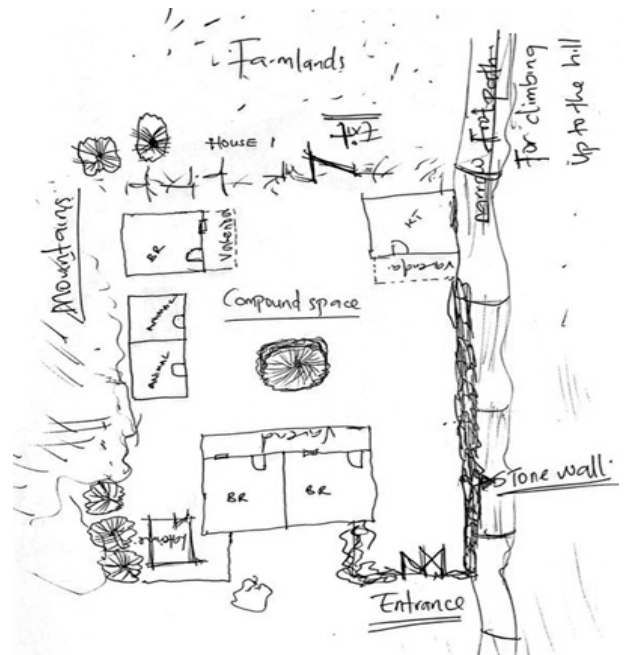 Farmlands
HOUSE 1
Exit
narrow Footpath
For climbing
Up to the hill
Mountains
BR
Varenda
KT
Varenda
Compound space
ANIMAL
ANIMAL
Varend
BR
BR
Latrine
Stone wall.
Entrance